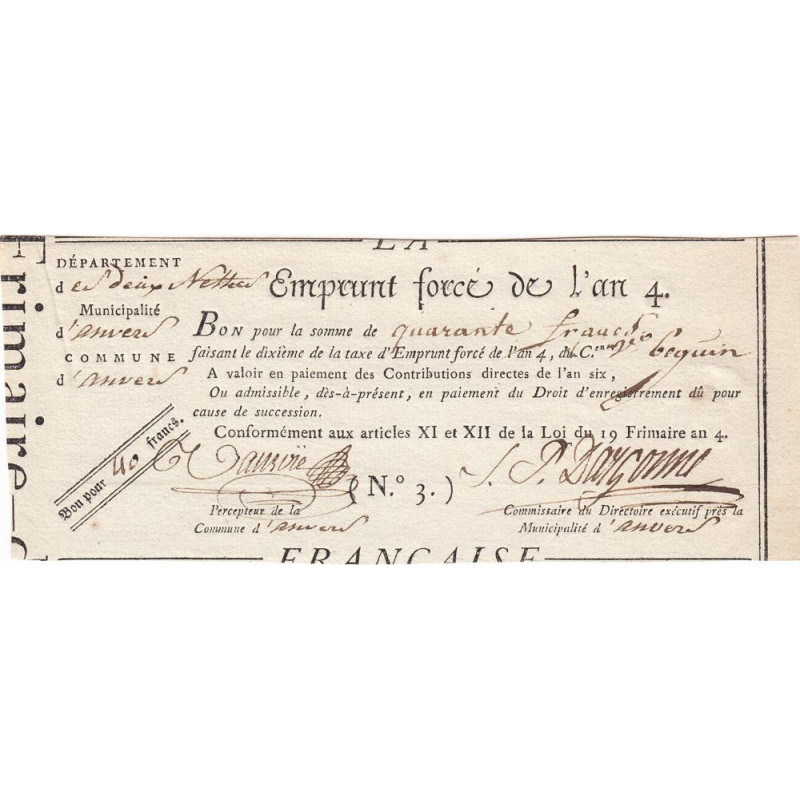 LA
Frimaire
DÉPARTEMENT
des deux Nethes
Municipalité
d'anvers
COMMUNE
d'anvers
Emprunt forcé de l'an 4.
BON pour la somme de quarante francs
faisant le dixième de la taxe d'Emprunt forcé de l'an 4, du C.en beguin
A valoir en paiement des Contributions directes de l'an six,
Ou admissible, dès-à-présent, en paiement du Droit d'enregistrement dû pour
cause de succession.
Conformément aux articles XI et XII de la Loi du 19 Frimaire an 4.
Bon pour 40 francs.
(N.° 3.)
Percepteur de la
Commune d'anvers
Commissaire du Directoire exécutif près la
Municipalité d'anvers
FRANÇAISE